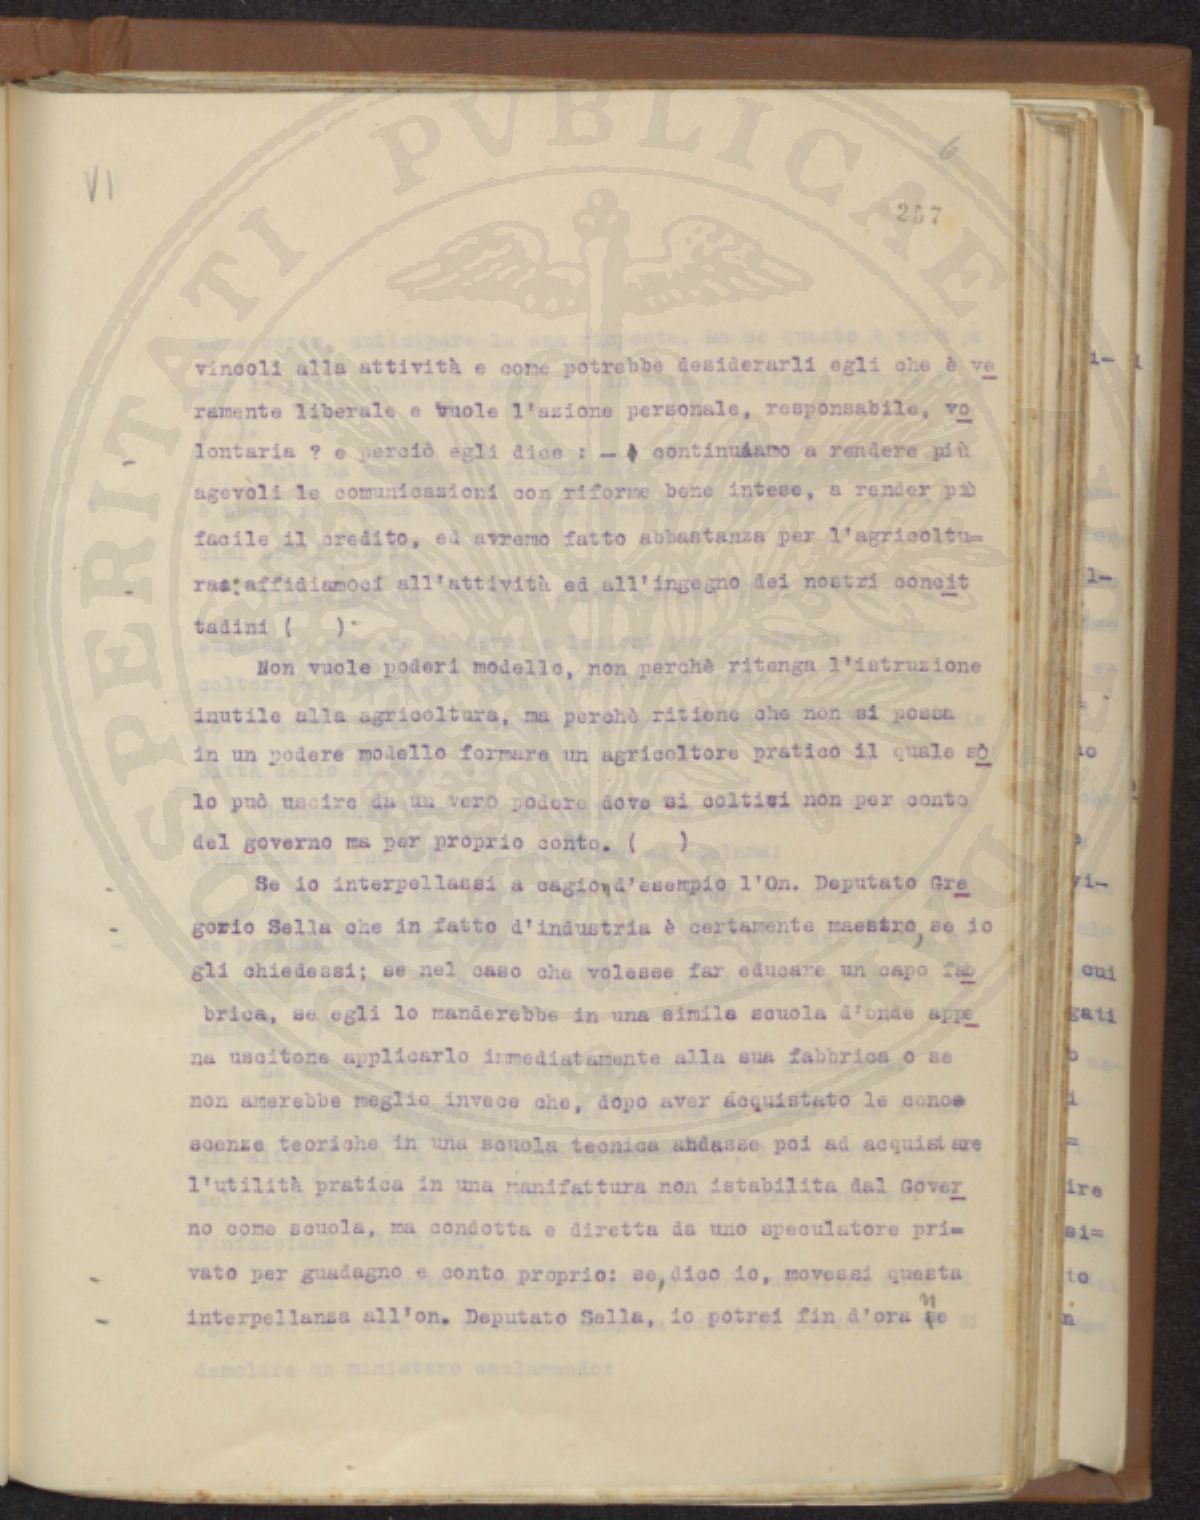 6
VI
257
vincoli alla attività e come potrebbe desiderarli egli che è ve
ramente liberale e vuole l'azione personale, responsabile, vo
lontaria ? e perciò egli dice : - continuiamo a rendere più
agevoli le comunicazioni con riforme bene intese, a render più
facile il credito, ed avremo fatto abbastanza per l'agricoltu=
ra: affidiamoci all'attività ed all'ingegno dei nostri concit
tadini (    ).
Non vuole poderi modello, non perchè ritenga l'istruzione
inutile alla agricoltura, ma perchè ritiene che non si possa
in un podere modello formare un agricoltore pratico il quale sò
lo può uscire da un vero podere dove si coltivi non per conto
del governo ma per proprio conto. (    )
Se io interpellassi a cagion d'esempio l'On. Deputato Gre
gorio Sella che in fatto d'industria è certamente maestro, se io
gli chiedessi; se nel caso che volesse far educare un capo fab
brica, se egli lo manderebbe in una simile scuola d'onde appe
na uscitone applicarlo immediatamente alla sua fabbrica o se
non amerebbe meglio invece che, dopo aver acquistato le cono=
scenze teoriche in una scuola tecnica andasse poi ad acquistare
l'utilità pratica in una manifattura non istabilita dal Gover
no come scuola, ma condotta e diretta da uno speculatore pri=
vato per guadagno e conto proprio: se, dico io, movessi questa
interpellanza all'on. Deputato Sella, io potrei fin d'ora ne
demolire un ministero esclamando:
SPERITATI PVBLICAE